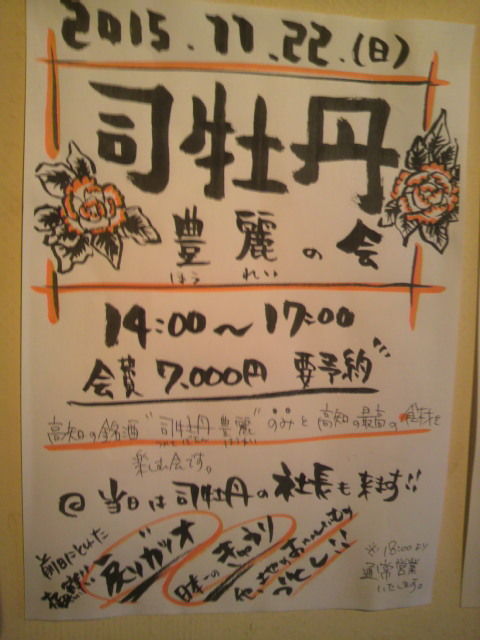 2015.11.22.(日)
司牡丹
豊麗の会
ほう れい
14:00〜17:00
会費 7,000円 要予約
高知の銘酒"司牡丹 豊麗"のみと高知の最高の食材を
楽しむ会です。
@ 当日は司牡丹の社長も来ます!!
前日にとれた
戻りガツオ
日本一のきゅうり
※18:00より
通常営業
いたします。